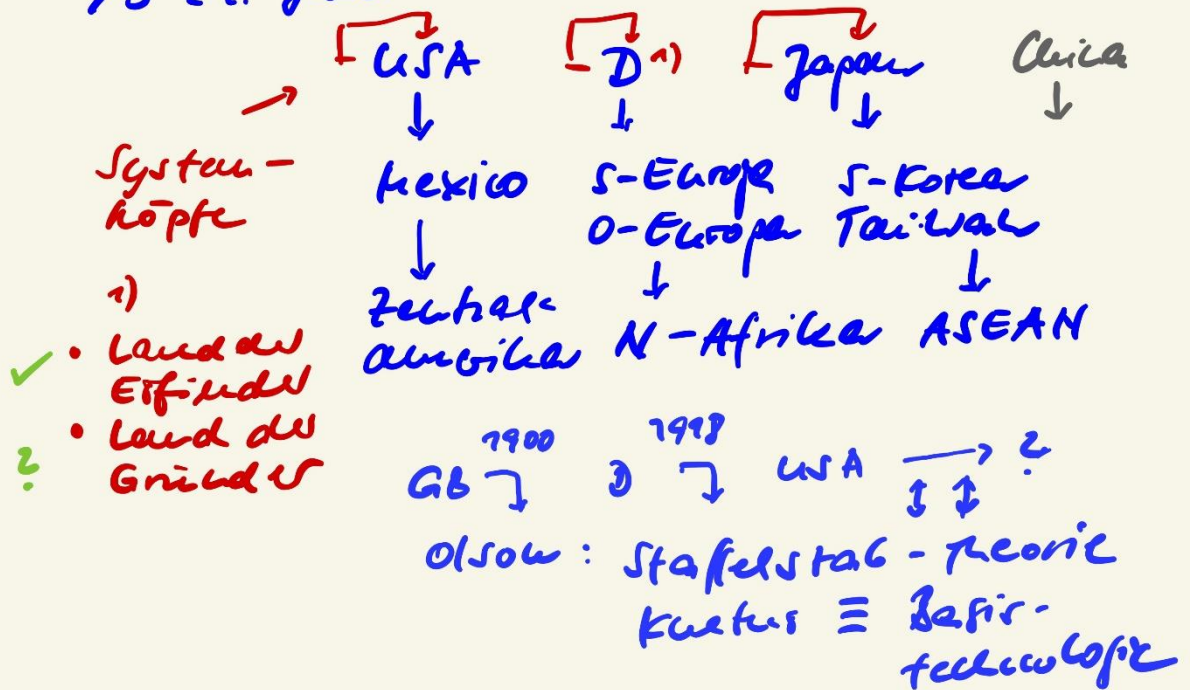 USA D 1) Japan China
System-
köpfe
Mexico S-Europa S-Korea
O-Europa Taiwan
Zentral-
amerika N-Afrika ASEAN
1)
• Land der
Erfinder
• Land der
Gründer
?
GB 1900 D 1918 USA → ?
Olson: Staffelstab-Theorie
Kultur ≡ Basis-
technologie